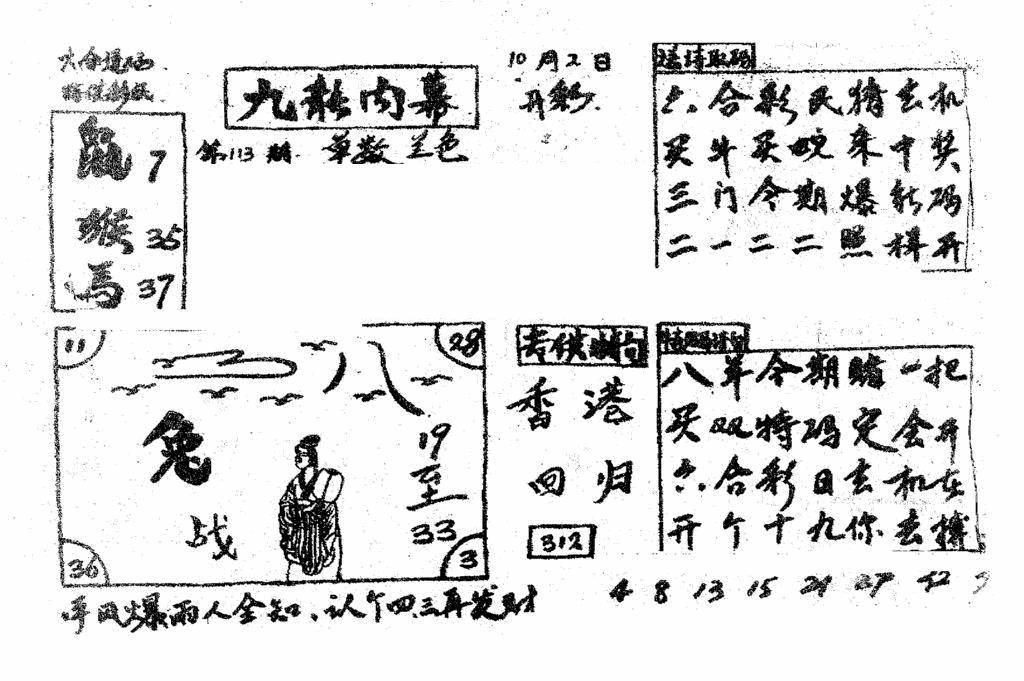 九龙内幕
第113期 单数 兰色
10月2日
开彩
鼠 7
猴 35
马 37
六合彩民猜玄机
买牛买蛇来中奖
三门今期爆彩码
二一二二照样开
11
28
八
兔
战
19
至
33
36
3
香港
回归
312
八单今期赌一把
买双特码定会开
六合彩日玄机在
开个十九你去搏
平风爆雨人全知、认个四三再发财
4 8 13 15 24 42